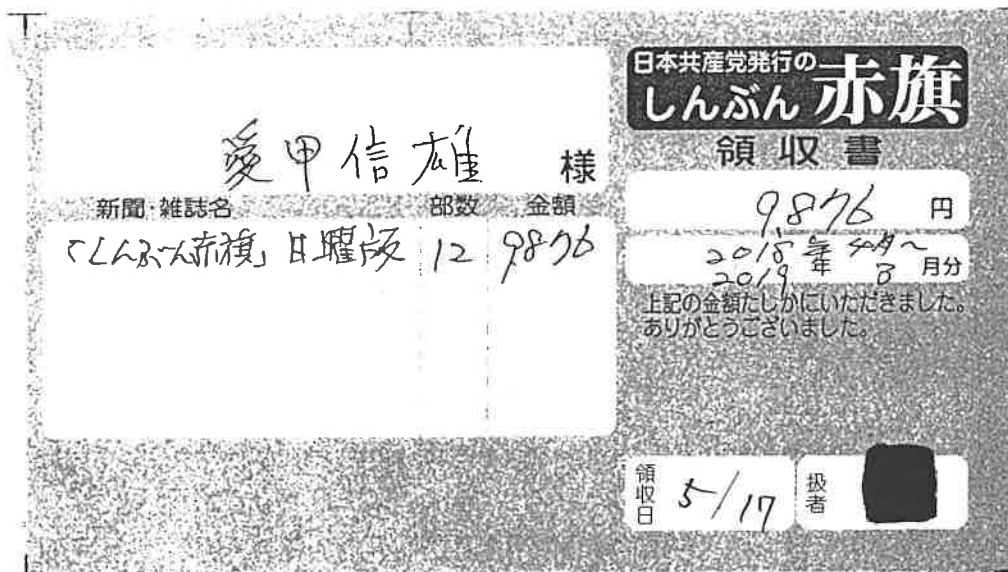 愛甲信雄 様
新聞・雑誌名 部数 金額
「しんぶん赤旗」日曜版 12 9,876
日本共産党発行の
しんぶん 赤旗
領収書
9,876 円
2018年4月〜
2019年3月分
上記の金額たしかにいただきました。
ありがとうございました。
領収日 5/17 扱者